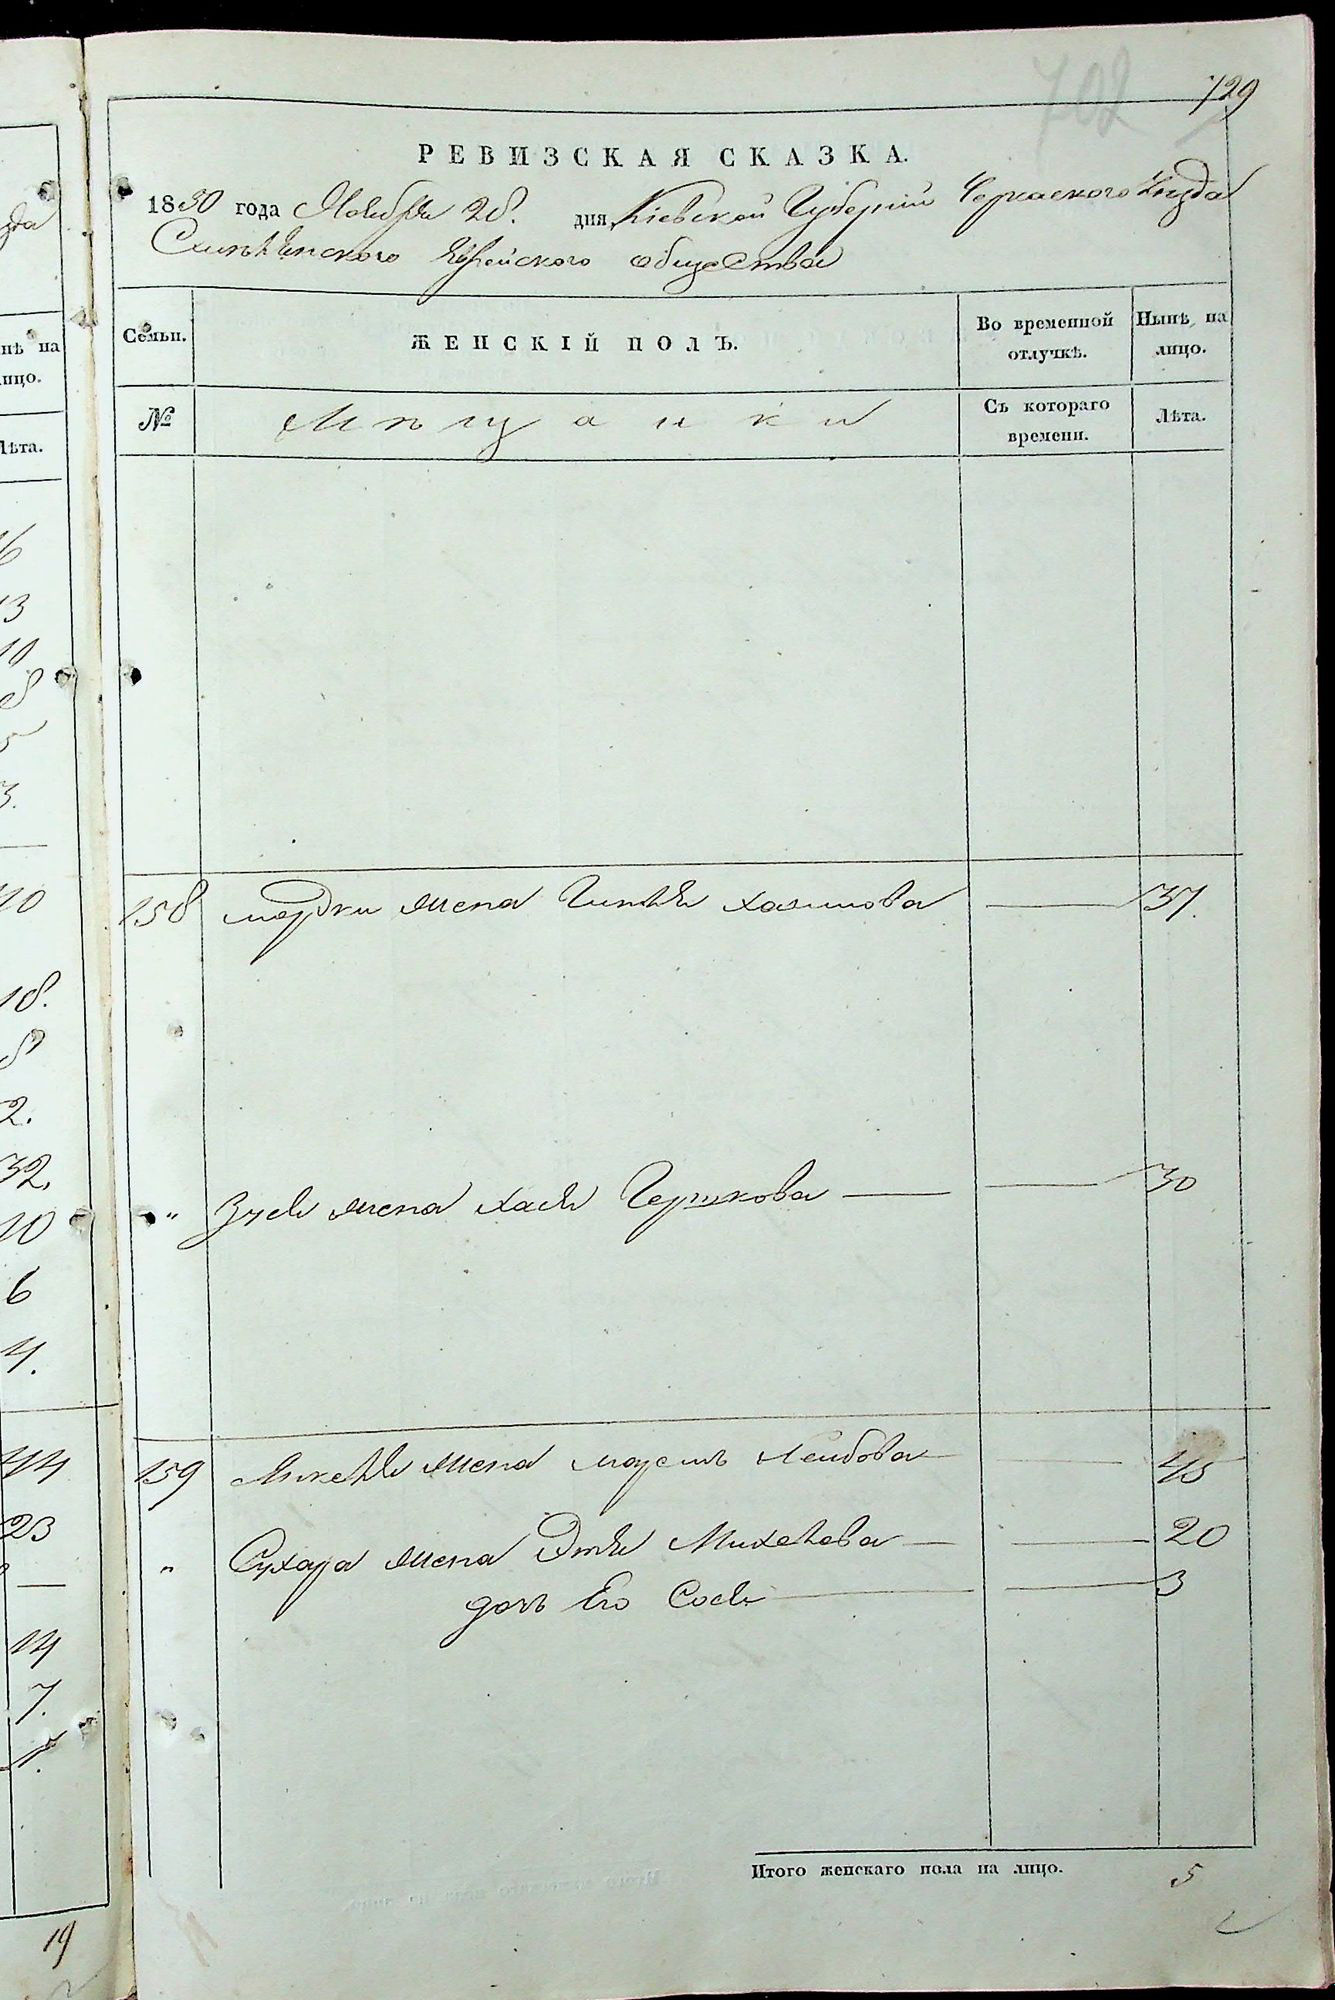 702
729
РЕВИЗСКАЯ СКАЗКА.
1850 года Ноября 28. дня, Кіевской Губерніи Черкаского Уезда
Еврейского общества
Семьи.
ЖЕНСКІЙ ПОЛЪ.
Во временной отлучкѣ.
Нынѣ на лицо.
№
Мѣщанки
Съ котораго времени.
Лѣта.
158 Мордки жена Гитля Хаимова 37.
" Зуся жена Хася Гершкова 30
159 Янкеля жена Лейбова 45
" Сухара жена Этя Михелева 20
дочь Его Сося 3
Итого женскаго пола на лицо. 5
зда
нѣ на
ицо.
Лѣта.
6
13
10
8
5
3.
40
18.
8
2.
32.
10
6
4.
44
23
14
7.
1.
19